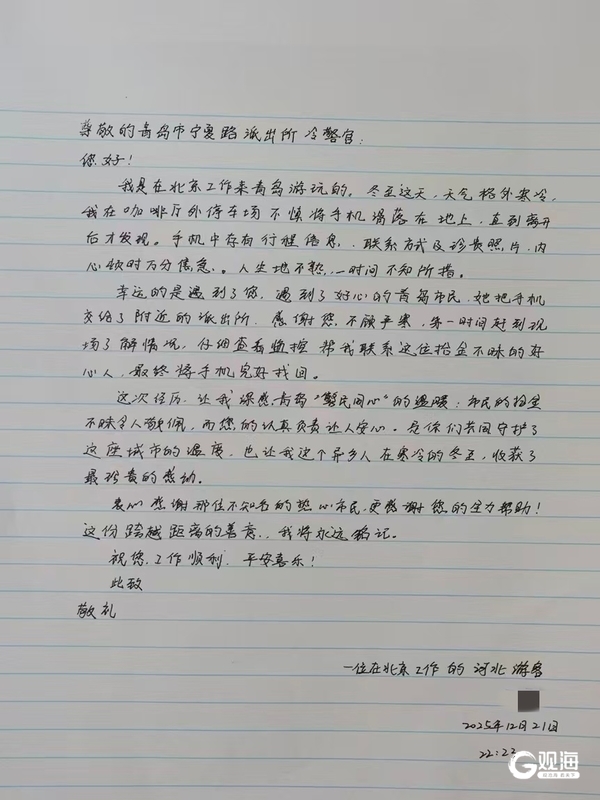 尊敬的青岛市宁夏路派出所冷警官:
您好!
我是在北京工作来青岛游玩的。冬至这天,天气格外寒冷,
我在咖啡厅外停车场不慎将手机滑落在地上,直到离开
后才发现。手机中存有行程信息、联系方式及珍贵照片,内
心顿时万分焦急。人生地不熟,一时间不知所措。
幸运的是遇到了您,遇到了好心的青岛市民,她把手机
交给了附近的派出所。感谢您不顾严寒,第一时间赶到现
场了解情况,仔细查看监控帮我联系这位拾金不昧的好
心人,最终将手机完好找回。
这次经历,让我深感青岛"警民同心"的温暖:市民的拾金
不昧令人敬佩,而您的认真负责让人安心。是你们共同守护了
这座城市的温度,也让我这个异乡人在寒冷的冬至,收获了
最珍贵的感动。
衷心感谢那位不知名的热心市民,更感谢您的全力帮助!
这份跨越距离的善意,我将永远铭记。
祝您工作顺利、平安喜乐!
此致
敬礼
一位在北京工作的河北游客
2025年12月21日
22:22
观海